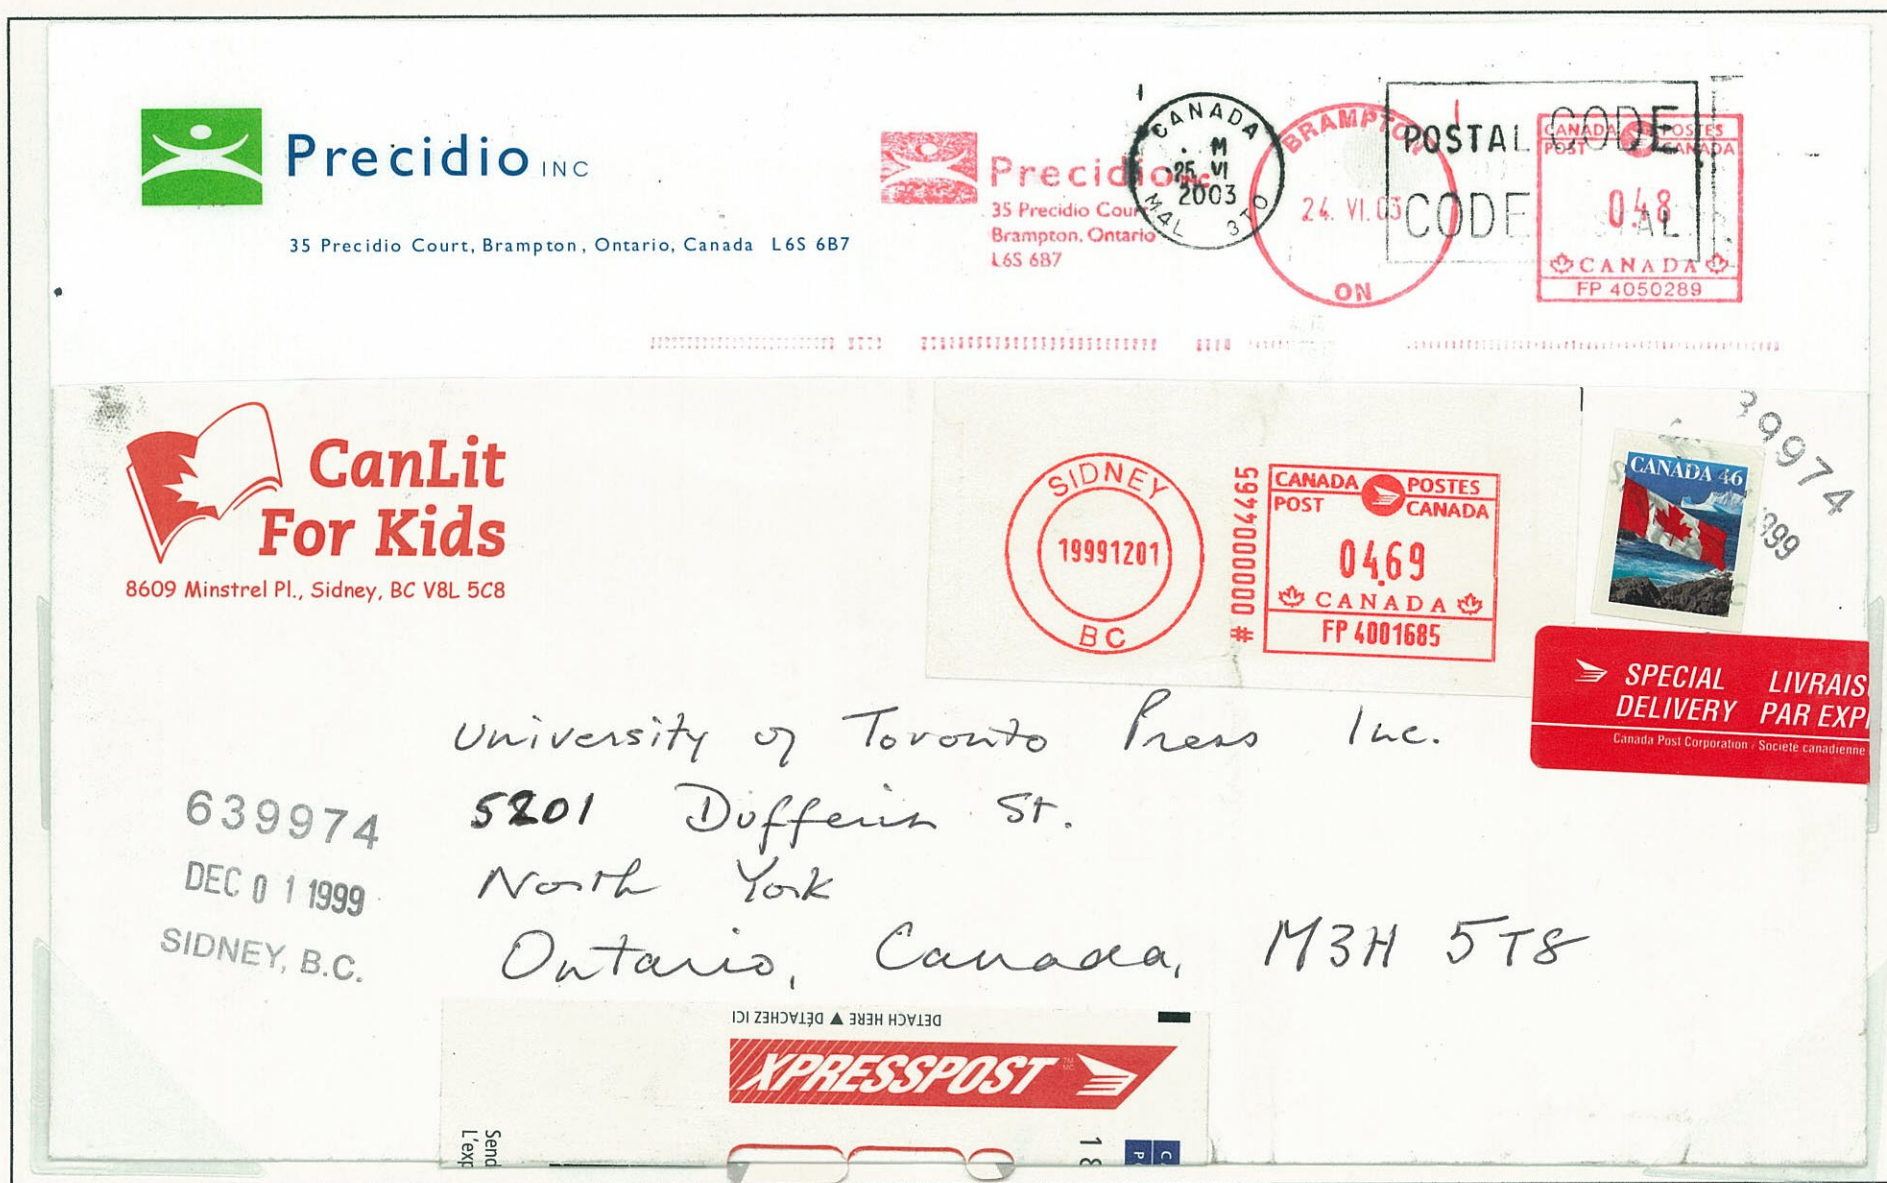 Precidio INC
35 Precidio Court, Brampton, Ontario, Canada L6S 6B7
Precidio INC
35 Precidio Court
Brampton, Ontario
L6S 6B7
CANADA
M
25 VI
2003
M4L 3T0
BRAMPTON
24. VI. 03
ON
POSTAL CODE
CODE STAL
CANADA POST POSTES CANADA
048
CANADA
FP 4050289
CanLit
For Kids
8609 Minstrel Pl., Sidney, BC V8L 5C8
SIDNEY
19991201
BC
# 0000004465
CANADA POST POSTES CANADA
04.69
CANADA
FP 4001685
CANADA 46
39974
1999
SPECIAL LIVRAIS
DELIVERY PAR EXP
Canada Post Corporation / Société canadienne
University of Toronto Press Inc.
5201 Dufferin St.
North York
Ontario, Canada, M3H 5T8
639974
DEC 01 1999
SIDNEY, B.C.
DETACH HERE ▼ DÉTACHEZ ICI
XPRESSPOST TM MC
Send
L'exp
18